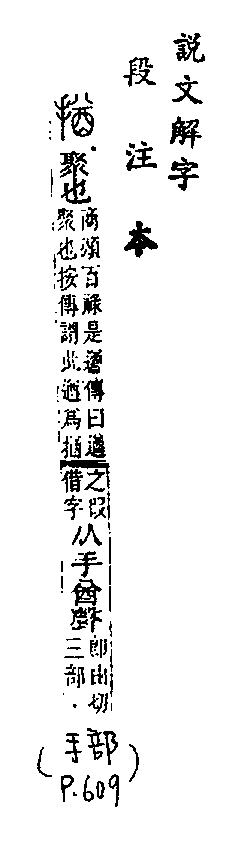 說文解字
段注本
揂
聚也
商頌百祿是遒傳曰遒
聚也按傳謂此遒爲揂
之叚
借字
从手酋聲
卽由切
三部
(手部
P.609)